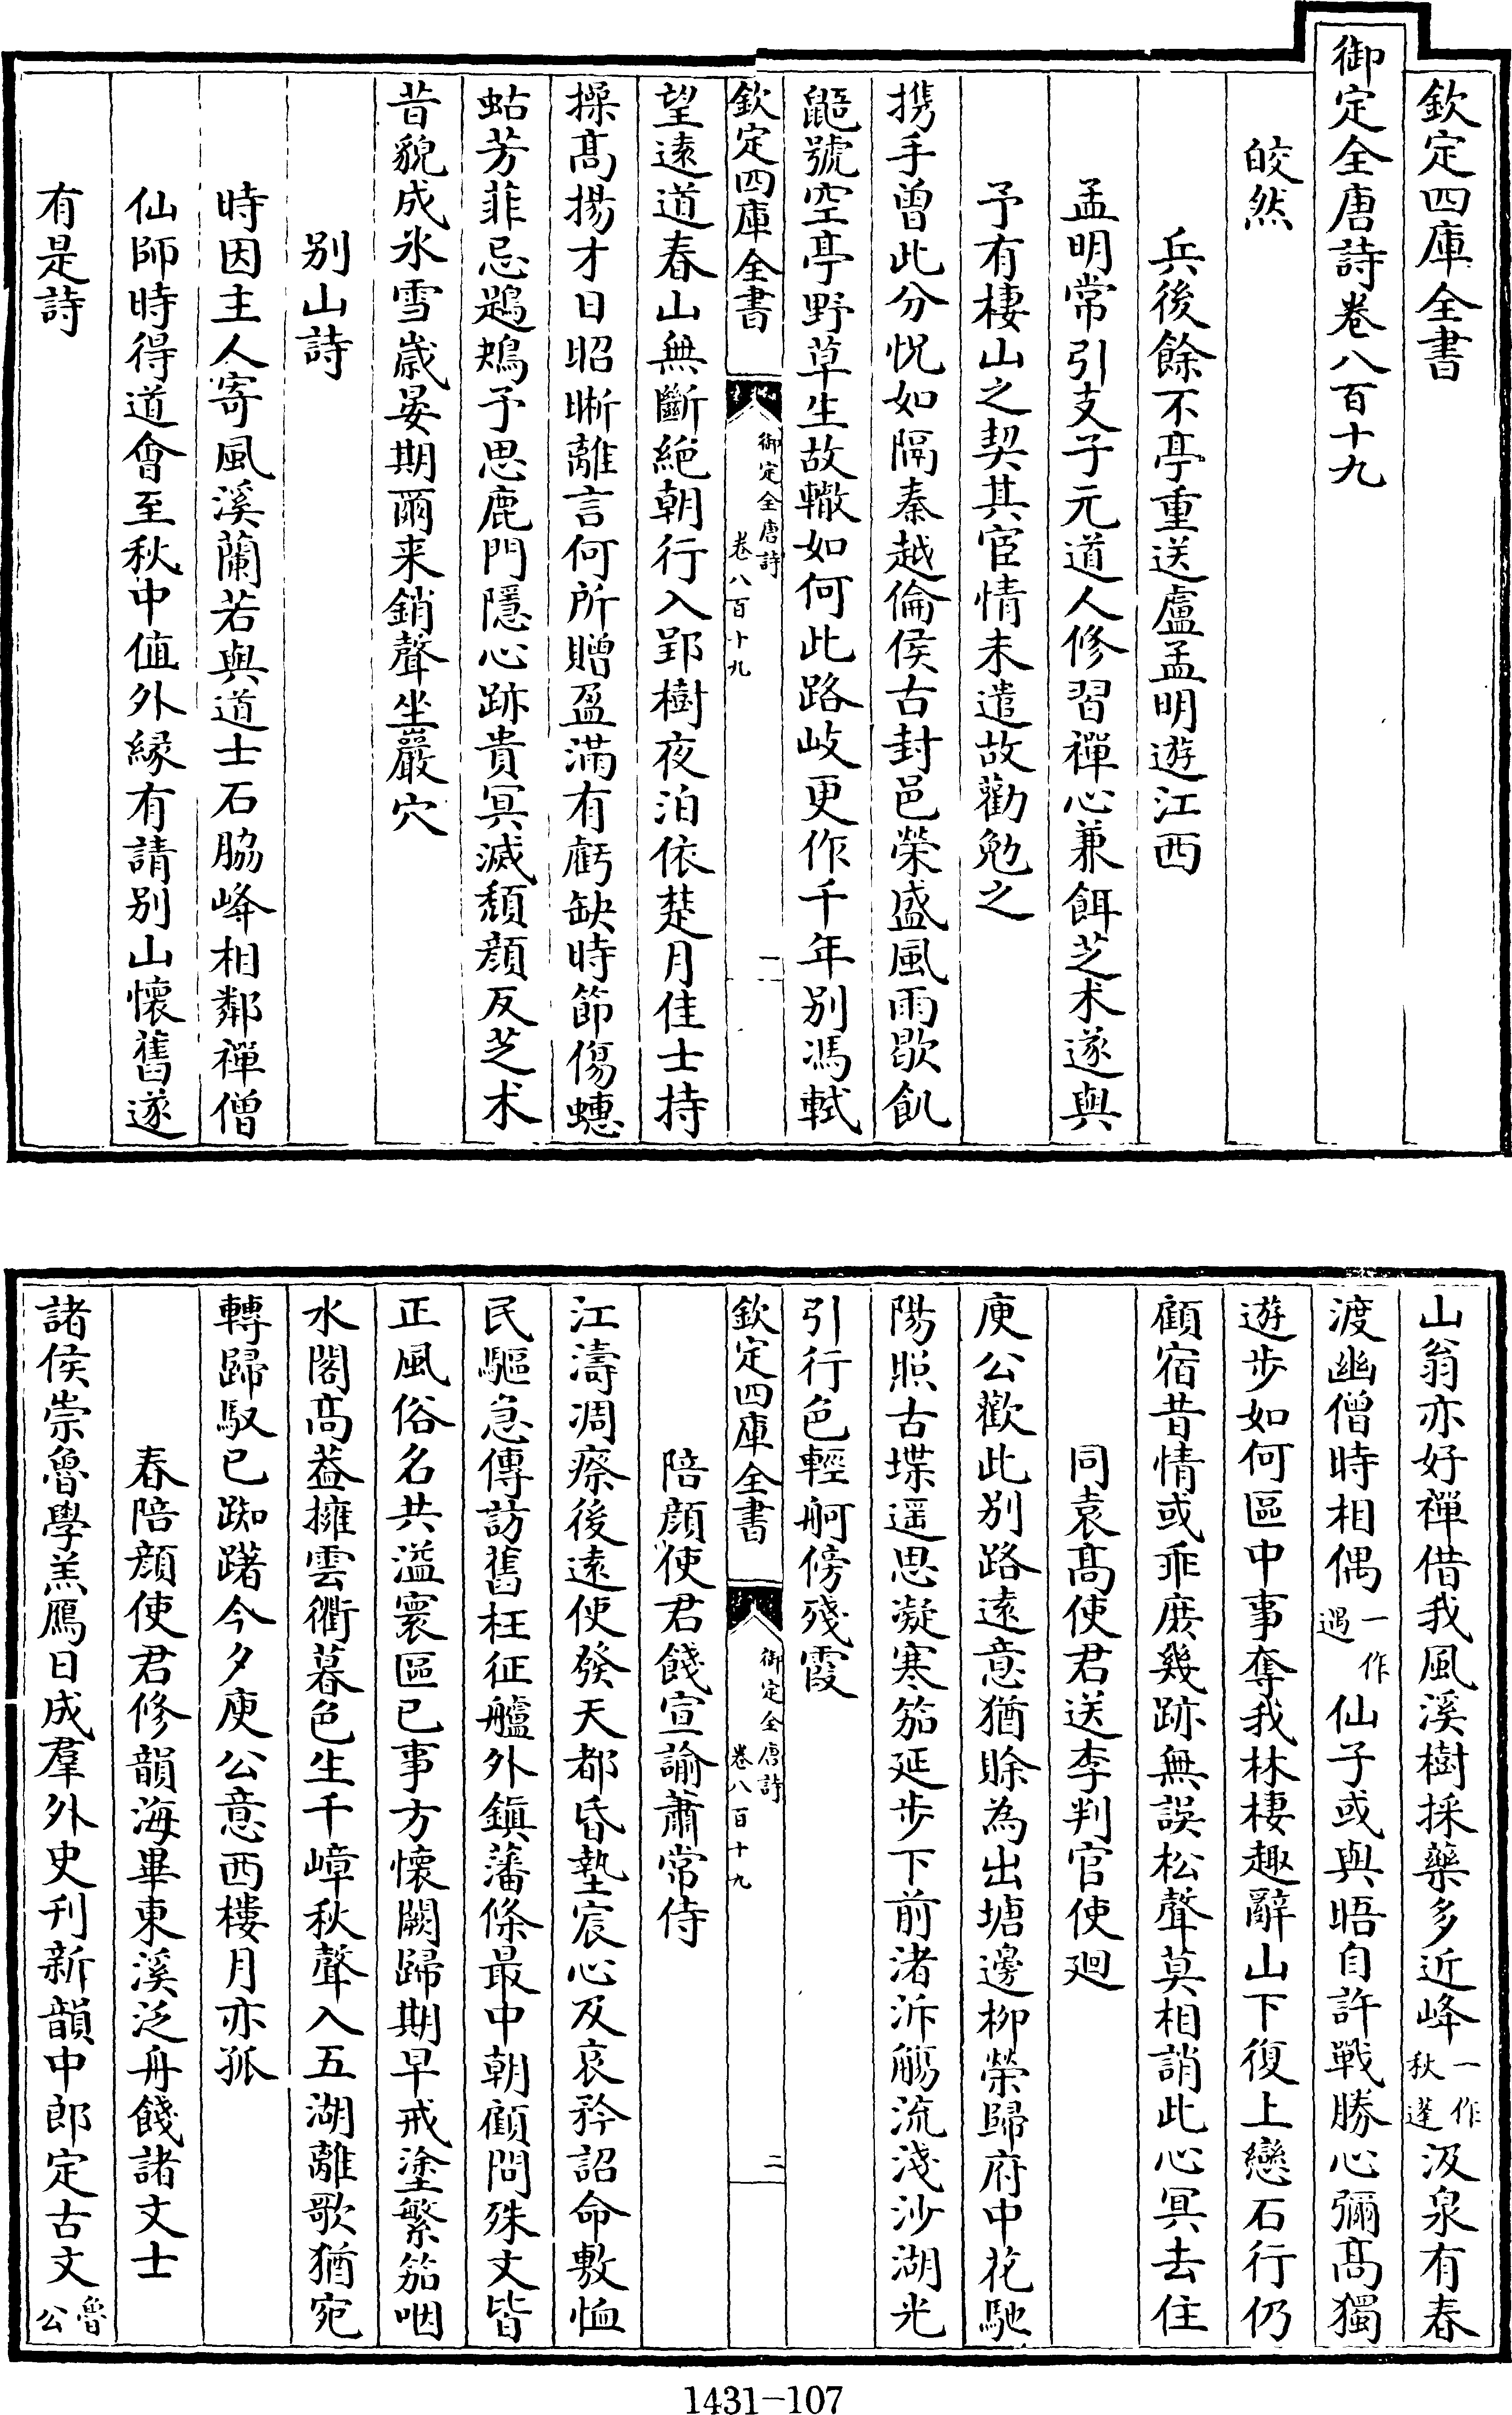 欽定四庫全書
御定全唐詩卷八百十九
皎然
兵後餘不亭重送盧孟明遊江西
孟明常引支子元道人修習禪心兼餌芝术遂與
予有棲山之契其宦情未遣故勸勉之
携手曾此分怳如隔秦越倫侯古封邑榮盛風雨歇飢
鼯號空亭野草生故轍如何此路岐更作千年别馮軾
欽定四庫全書
御定全唐詩
卷八百十九
一
望遠道春山無斷絶朝行入郢樹夜泊依楚月佳士持
操髙揚才日昭晣離言何所贈盈滿有虧缺時節傷蟪
蛄芳菲忌鶗鴂予思鹿門隱心跡貴冥滅頽顔反芝术
昔貌成氷雪嵗晏期爾来銷聲坐巖穴
别山詩
時因主人寄風溪蘭若與道士石脇峰相鄰禪僧
仙師時得道會至秋中值外縁有請别山懷舊遂
有是詩
山翁亦好禪借我風溪樹採藥多近峰一作秋蓬汲泉有春
渡幽僧時相偶一作遇仙子或與晤自許戰勝心彌髙獨
遊步如何區中事奪我林棲趣辭山下復上戀石行仍
顧宿昔情或乖庶幾跡無誤松聲莫相誚此心冥去住
同袁髙使君送李判官使廻
庾公歡此别路遠意猶賒為出塘邊柳榮歸府中花馳
陽照古堞遥思凝寒笳延步下前渚泝觴流淺沙湖光
引行色輕舸傍殘霞
欽定四庫全書
御定全唐詩
卷八百十九
二
陪顔使君餞宣諭蕭常侍
江濤凋瘵後遠使發天都昏墊宸心及哀矜詔命敷恤
民驅急傳訪舊枉征艫外鎮藩條最中朝顧問殊文皆
正風俗名共溢寰區已事方懷闕歸期早戒塗繁笳咽
水閣髙葢擁雲衢暮色生千嶂秋聲入五湖離歌猶宛
轉歸馭已踟躇今夕庾公意西樓月亦孤
春陪顔使君修韻海畢東溪泛舟餞諸文士
諸侯崇魯學羔鴈日成羣外史刊新韻中郎定古文魯公
1431-107